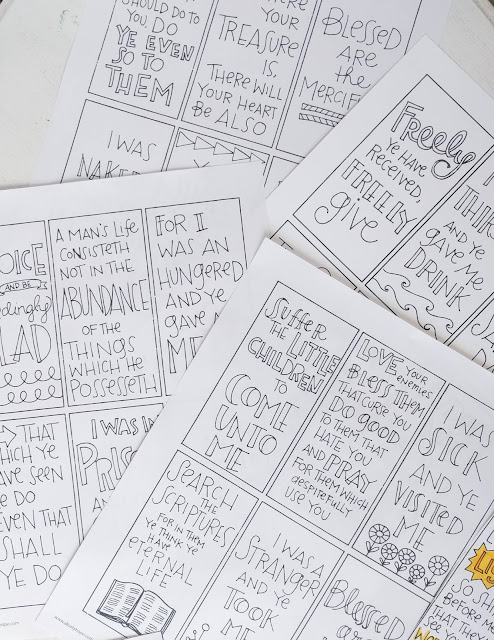 SHOULD DO TO
YOU, DO
YE EVEN
SO TO
THEM
YOUR
TREASURE
IS,
THERE WILL
YOUR HEART
BE ALSO
BLESSED
ARE
the
I WAS
FREELY
YE HAVE
RECEIVED,
FREELY
give
AND YE
GAVE ME
DRINK
AND BE
A MAN'S LIFE
CONSISTETH
NOT IN THE
ABUNDANCE
OF THE
THINGS
WHICH HE
POSSESSETH
FOR I
WAS AN
HUNGERED
AND YE
ME
THAT
WHICH YE
HAVE SEEN
DO
EVEN THAT
SHALL
YE DO
I WAS IN
SUFFER
THE LITTLE
CHILDREN
TO
COME
UNTO
ME
LOVE YOUR
enemies,
BLESS THEM
THAT CURSE YOU
DO GOOD
TO THEM THAT
HATE YOU
AND PRAY
FOR THEM WHICH
DESPITEFULLY
USE YOU
I WAS
SICK
AND YE
VISITED
ME
SEARCH
THE
SCRIPTURES
FOR IN THEM
YE THINK YE
HAVE
eternal
LIFE
I WAS A
STRANGER
AND YE
TOOK
ME
Blessed
SO
BEFORE
THAT